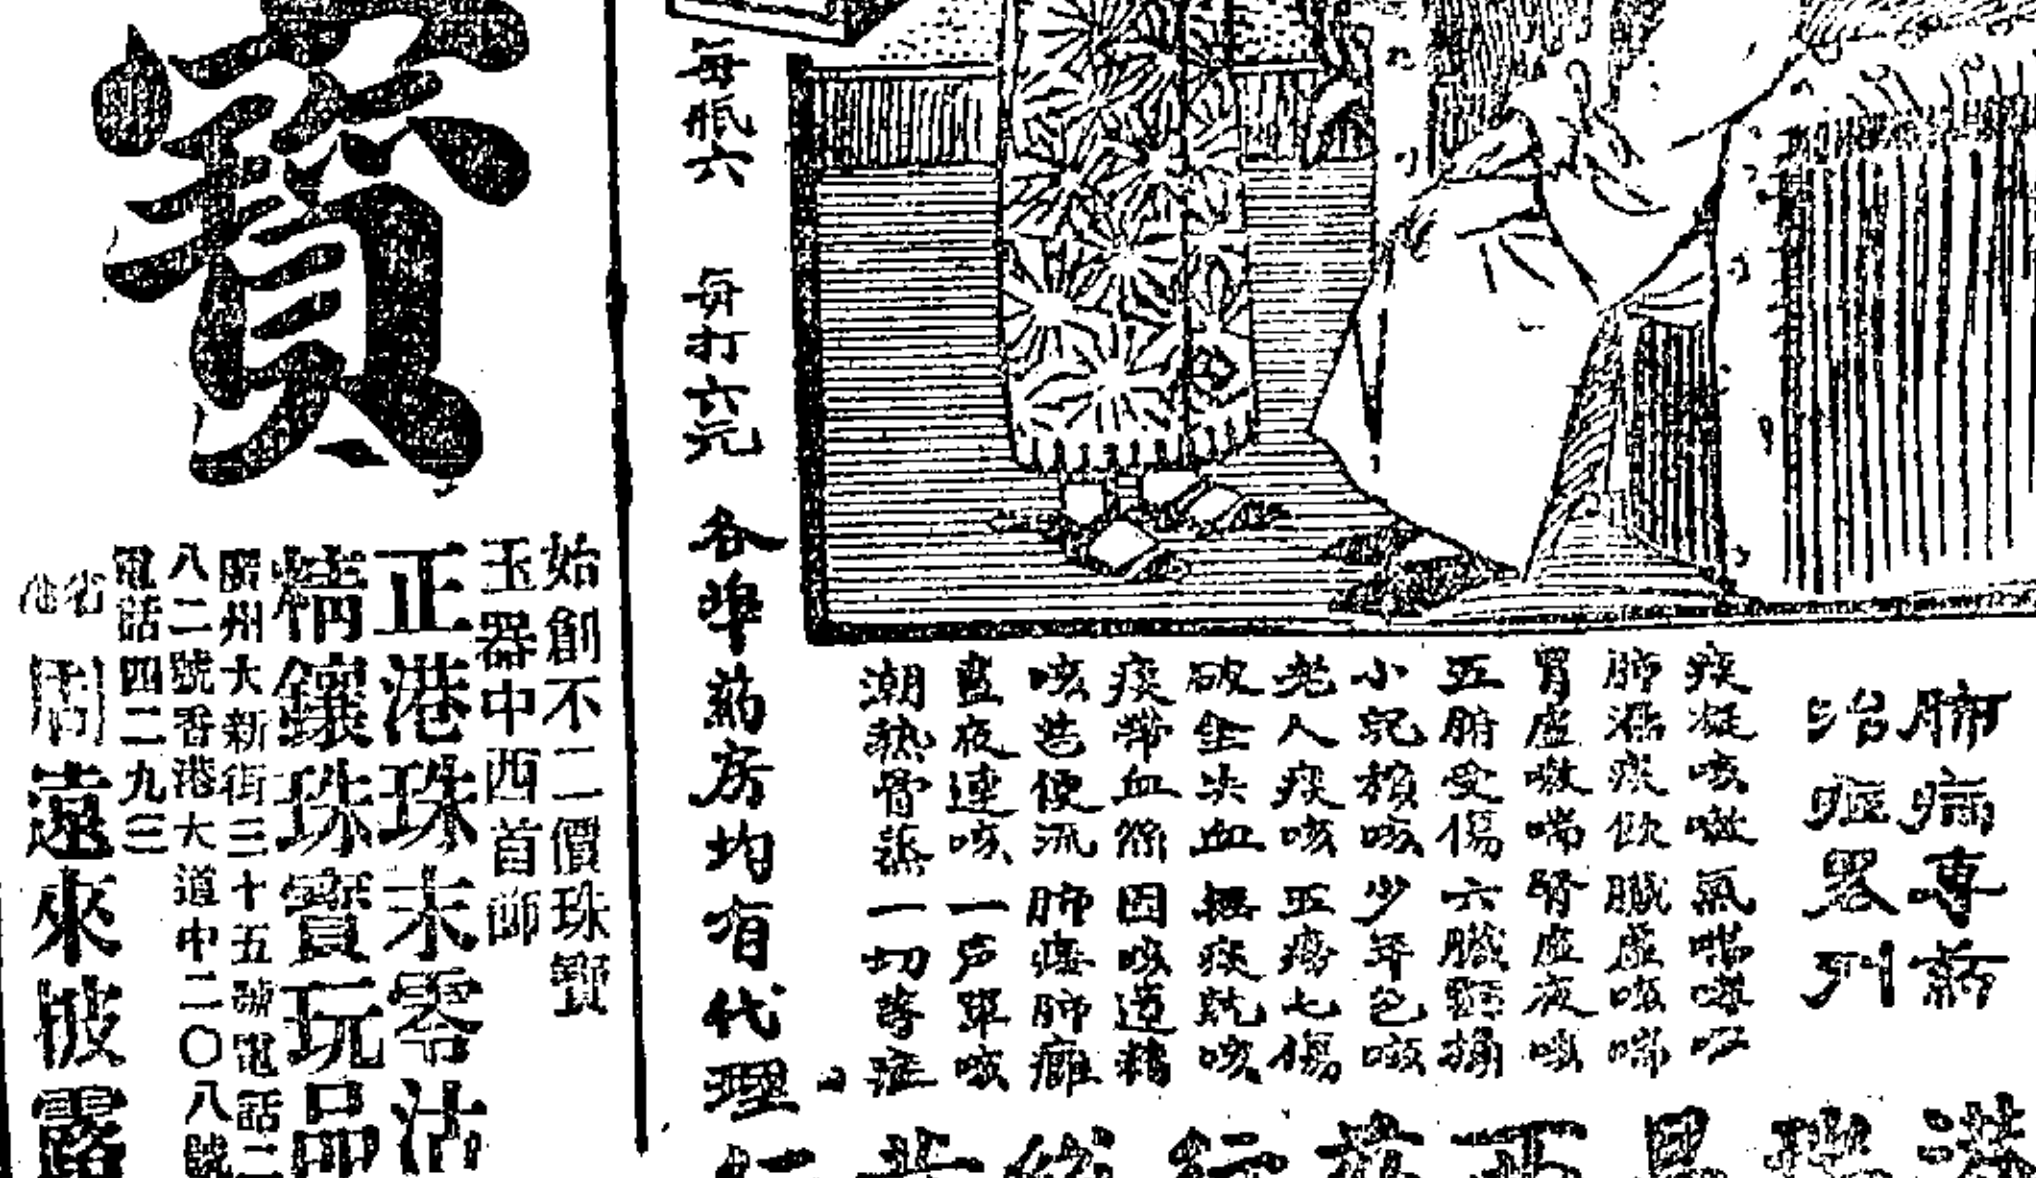 肺病専葯
治症畧列
痰凝咳嗽氣喘
肺濕痰飲臟虛咳喘
胃虛嗽喘腎虛夜咳
五腑受傷六臟
小兒頓咳少年色咳
老人痰咳五癆七傷
破金失血
痰帶血絲因咳遺精
咳甚便流肺癆肺癰
晝夜連咳一声單咳
潮熱骨蒸一切等症
每瓶六
每打六元
各埠葯房均有代理
寶
始創不二價珠寶
玉器中西首飾
正港珠末零沽
精鑲珠寶玩品
廣州大新街三十五號電話二
八二號香港大道中二〇八號
電話四二九三
省港
周遠來披露